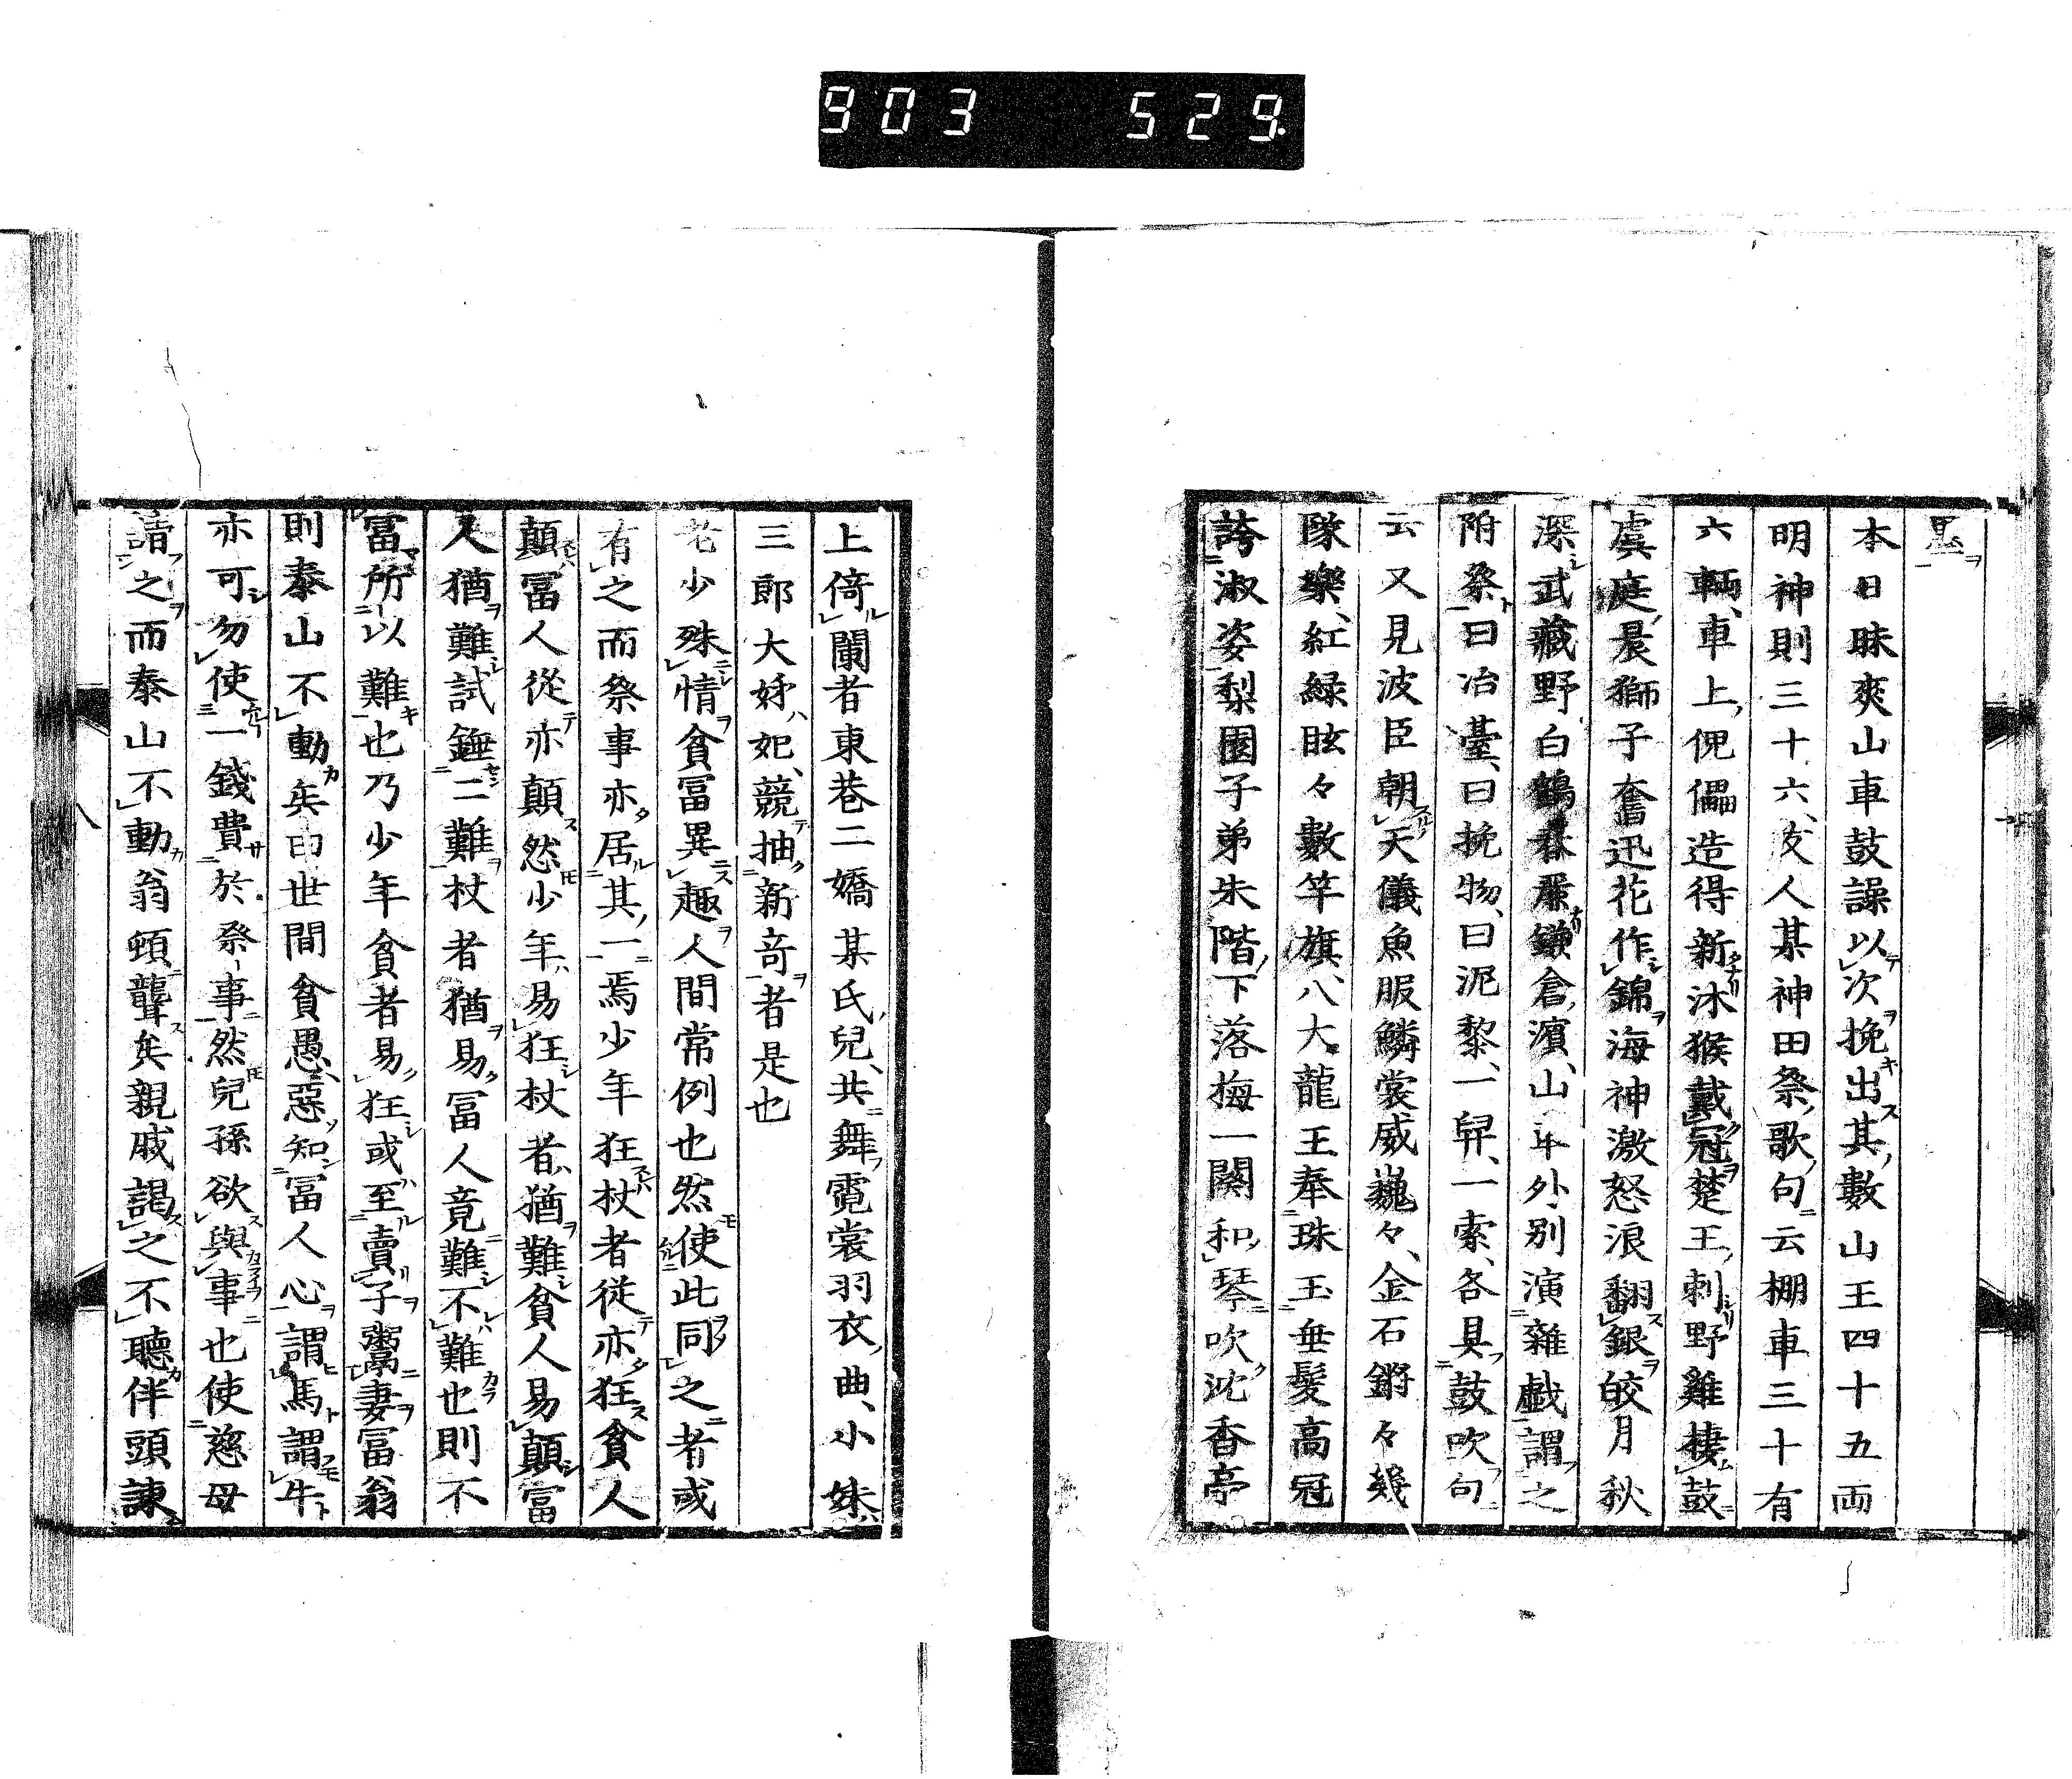 903 529
墨
本日昧爽山車鼓譟以次挽出其數山王四十五両
明神則三十六、友人某神田祭歌句云棚車三十有
六輌、車上傀儡造得新沐猴戴冠楚王刺野雞棲鼓
虞庭晨獅子奮迅花作錦海神激怒浪翻銀皎月秋
深武藏野白鶴春靨鎌倉濵、山車外別演雜戯謂之
附祭曰冶臺、曰挽物、曰泥黎、一舁、一索、各具鼓吹句
云又見波臣朝天儀魚服鱗裳威巍々、金石鏘々幾
隊樂、紅緑眩々數竿旗、八大龍王奉珠玉垂髮高冠
誇淑姿梨園子弟朱階下落梅一闋和琴吹沈香亭
上倚闌者東巷二嬌某氏兒、共舞霓裳羽衣曲、小妹
三郎大姊妃、競抽新竒者是也
老少殊情貧冨異趣人間常例也然使此同之者或
有之而祭事亦居其一焉少年狂杖者従亦狂貧人
顛冨人従亦顛然少年易狂杖者猶難貧人易顛冨
人猶難試錘二難杖者猶易冨人竟難不難也則不
冨所以難也乃少年貧者易狂或至賣子鬻妻冨翁
則泰山不動矣由世間貧愚惡知冨人心謂馬謂牛
亦可勿使一錢費於祭事然兒孫欲與事也使慈母
請之而泰山不動翁頓聾矣親戚謁之不聽伴頭諫